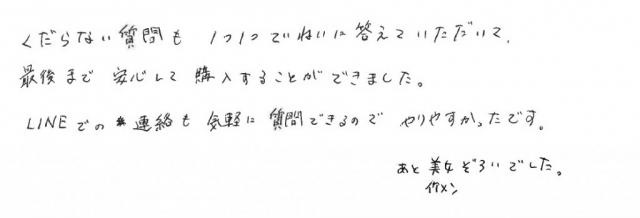 くだらない質問も 1つ1つていねいに答えていただいて、
最後まで 安心して 購入することができました。
LINEでの 連絡も 気軽に 質問できるので やりやすかったです。
あと 美女ぞろいでした。
イケメン